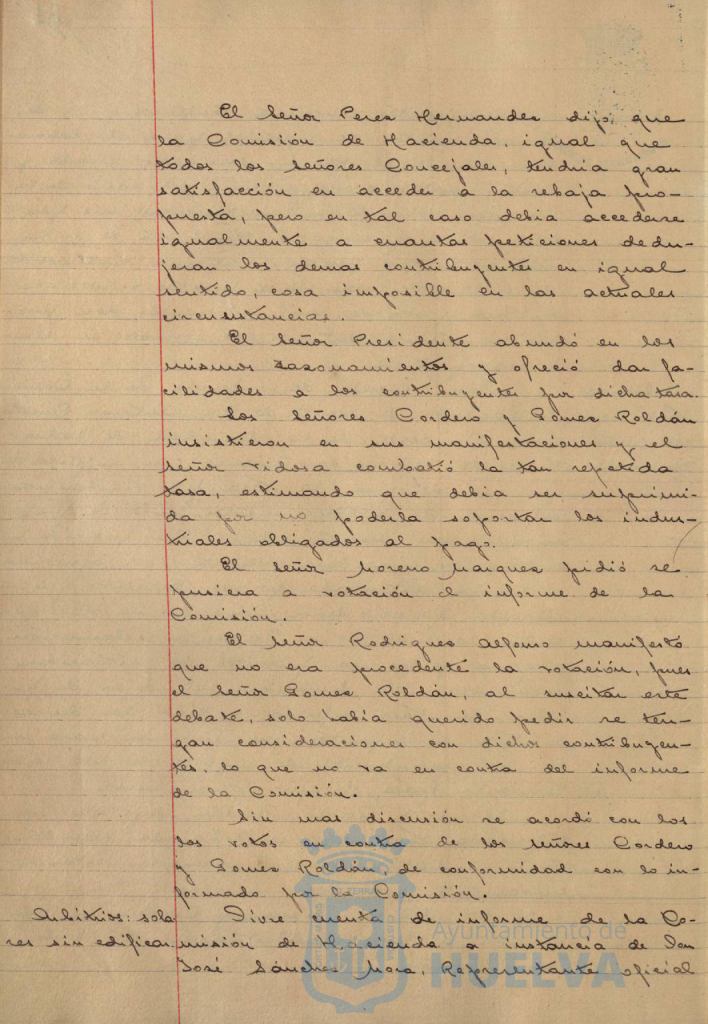 El Señor Perez Hernandez dijo, que
la Comisión de Hacienda, igual que
todos los señores Concejales, tendria gran
satisfacción en acceder a la rebaja pro-
puesta, pero en tal caso debia accederse
igualmente a cuantas peticiones dedu-
jeran los demas contribuyentes en igual
sentido, cosa imposible en las actuales
circunstancias.
El Señor Presidente abundó en los
mismos razonamientos y ofreció dar fa-
cilidades a los contribuyentes por dicha tasa.
Los Señores Cordero y Gomez Roldán
insistieron en sus manifestaciones y el
señor Vidosa combatió la tan repetida
tasa, estimando que debia ser suprimi-
da por no poderla soportar los indus-
triales obligados al pago.
El Señor Moreno Marquez pidió se
pusiera a votación el informe de la
Comisión.
El Señor Rodriguez Alfonso manifestó
que no era procedente la votación, pues
el Señor Gomez Roldán, al suscitar este
debate, solo habia querido pedir se ten-
gan consideraciones con dichos contribuyen-
tes, lo que no va en contra del informe
de la Comisión.
Sin mas discusión se acordó con los
los votos en contra de los señores Cordero
y Gomez Roldán, de conformidad con lo in-
formado por la Comisión.
Arbitrios: sola-
res sin edificar.
Dióse cuenta de informe de la Co-
misión de Hacienda a instancia de Don
José Sánchez Mora, Representante oficial
Ayuntamiento de
HUELVA